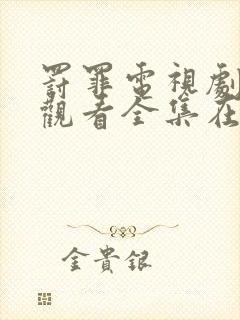 罸罪電視劇
觀看全集在
金貴銀